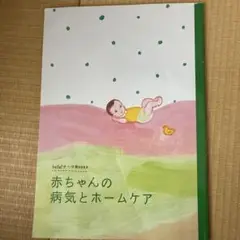 赤ちゃんの
病気とホームケア